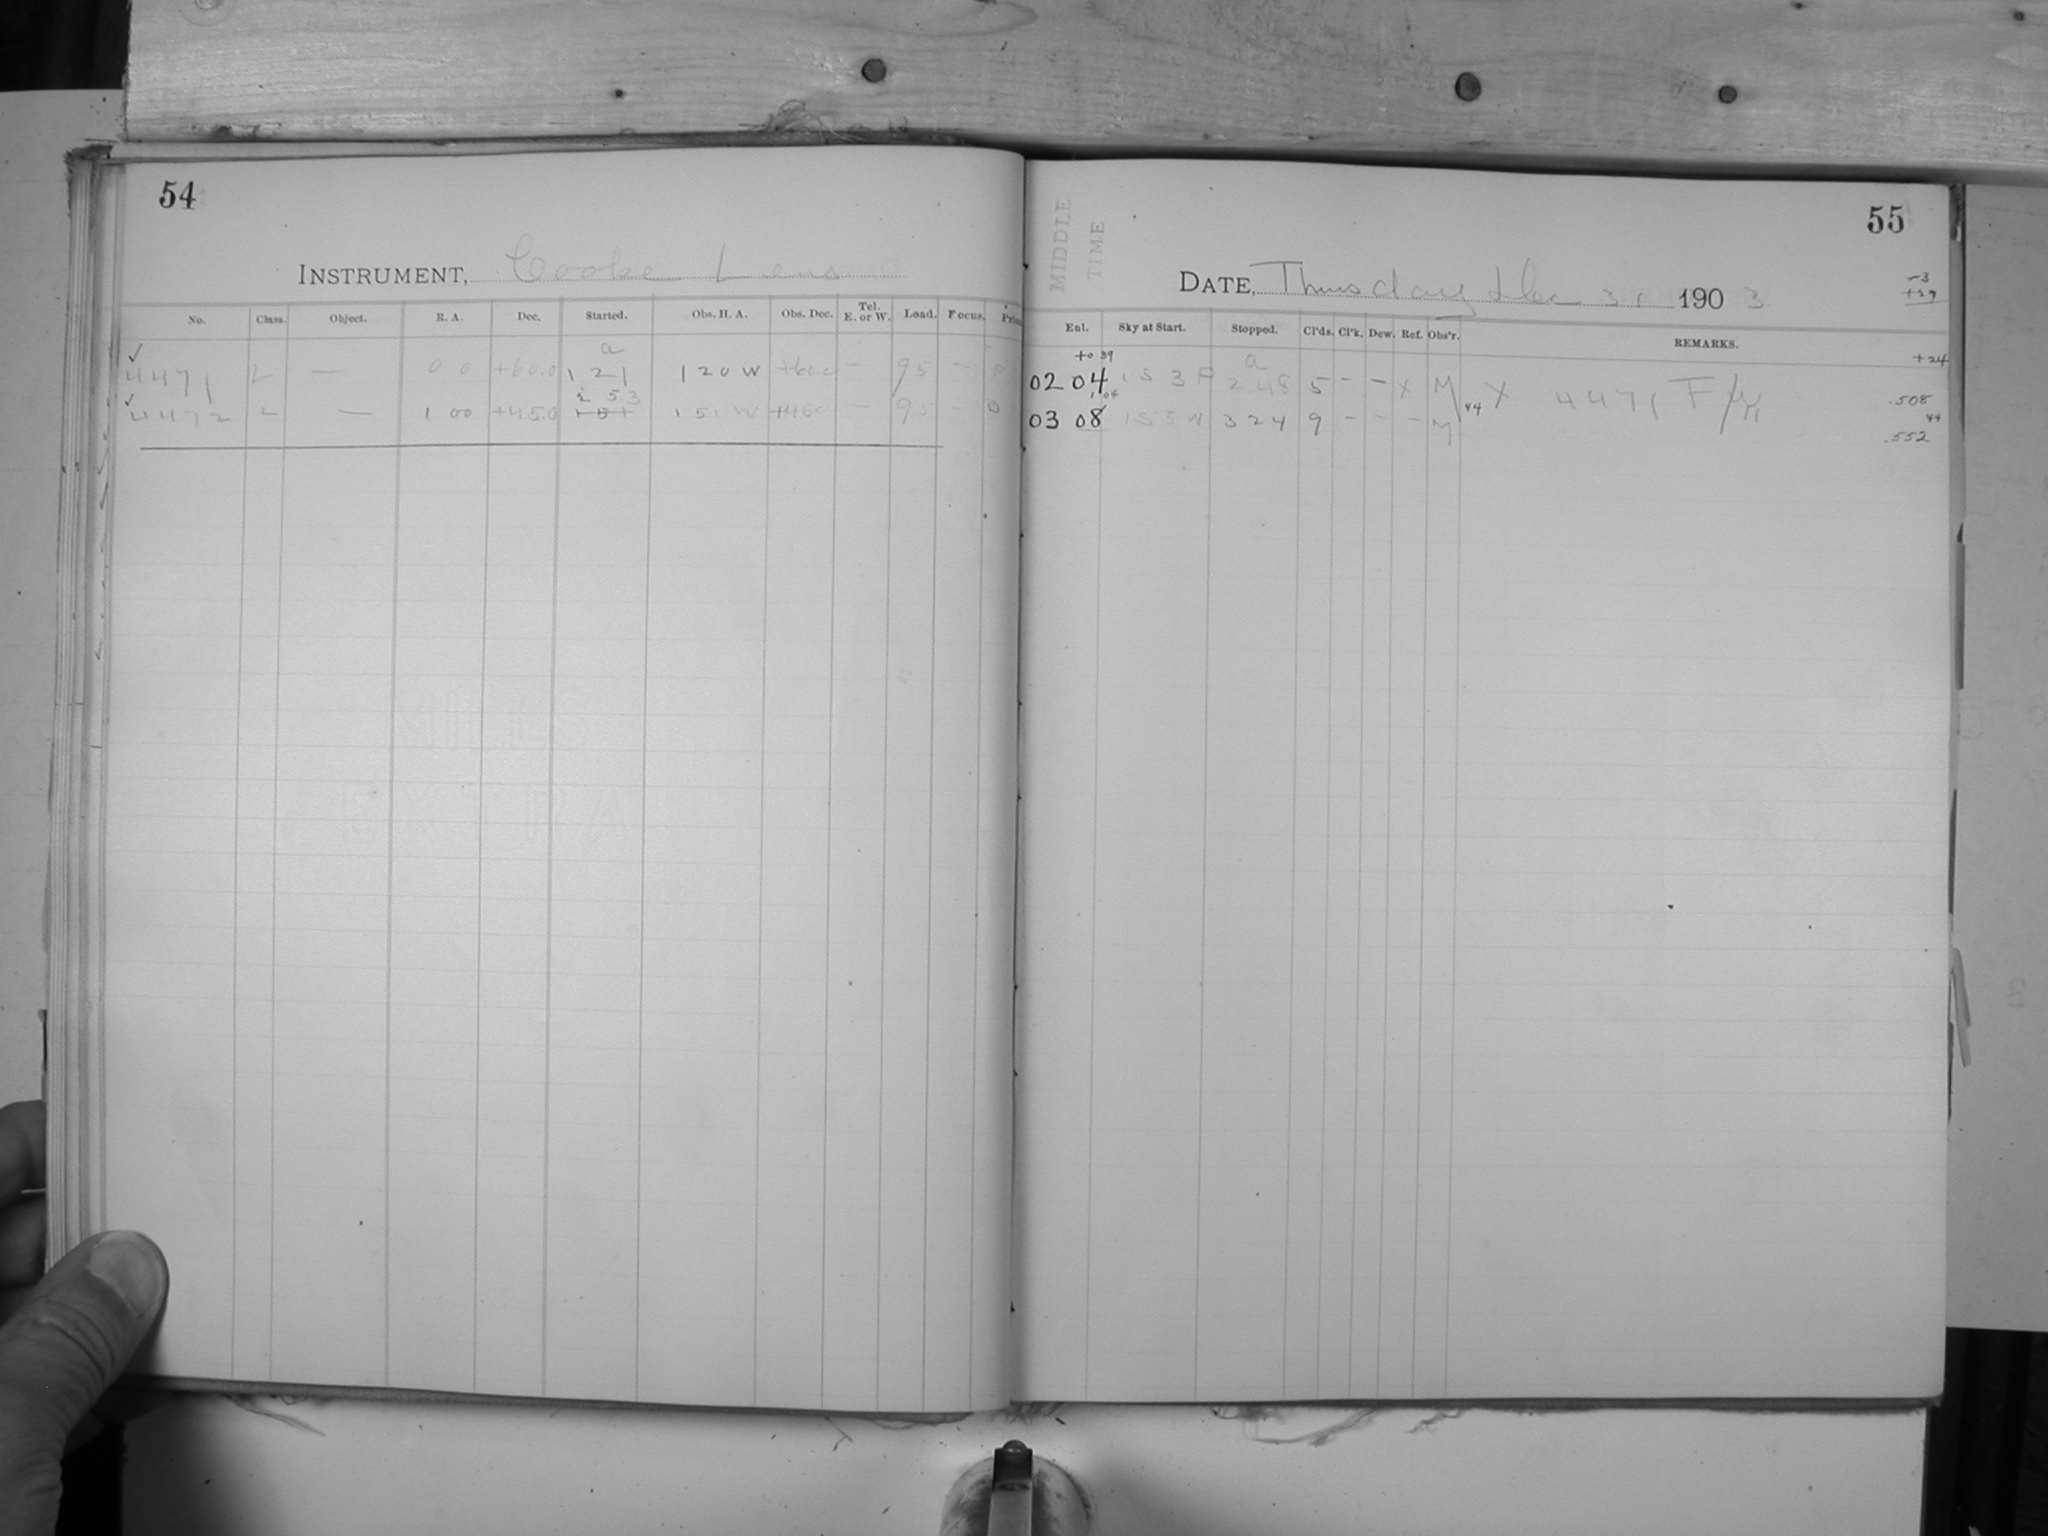 54
INSTRUMENT, Cooke Lens
No. Class. Object. R. A. Dec. Started. Obs. H. A. Obs. Dec. Tel. E. or W. Load. Focus.
a
✓ 4471 L — 0 0 +60.0 1 21 1 20 W +60.0 — 95 —
2 53
✓ 4472 L — 1 00 +45.0 1 51 1 51 W +45.0 — 95 —
55
MIDDLE
TIME
DATE, Thursday Dec 31 1903
-3
+29
Enl. Sky at Start. Stopped. Cl'ds. Cl'k. Dew. Ref. Obs'r. REMARKS.
+0 39 a +24
02 04 1 S 3 P 2 48 5 - - x M X 4471 F/M .508
1 04 44 44
03 08 1 S 5 N 3 24 9 - - - M .552